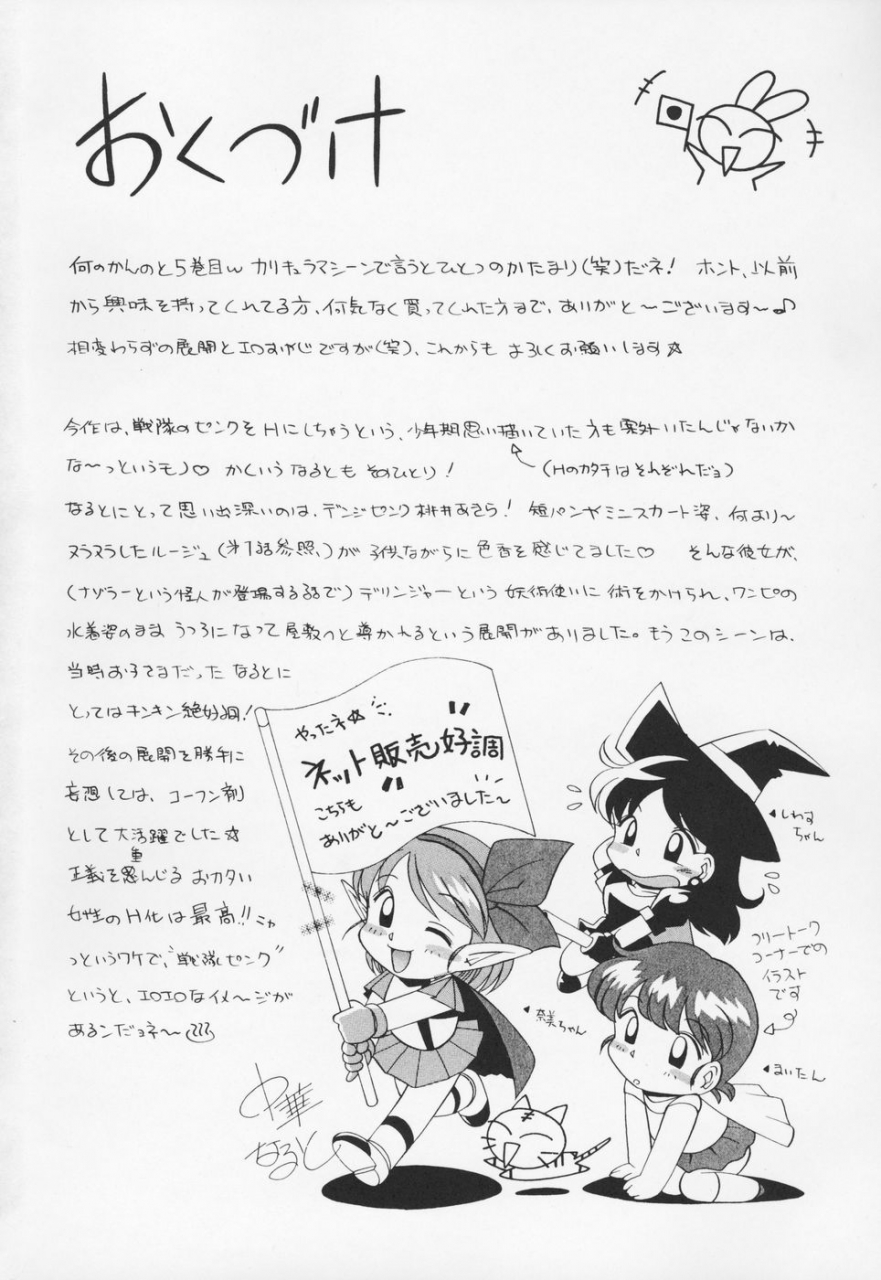 おくづけ
何のかんのと5巻目w カリキュラマシーンで言うとひとつのかたまり(笑)だネ! ホント、以前
から興味を持ってくれてる方、何気なく買ってくれた方まで、ありがと〜ございます〜♪
相変わらずの展開とエロオヤジですが(笑)、これからも よろしくお願いします☆
今作は、戦隊のピンクをHにしちゃうという、少年期思い描いていた方も案外いたんじゃないか
な〜っというモノ♡ かくいうなるとも そのひとり!
(Hのカタチはそれぞれだョ)
なるとにとって思い出深いのは、デンジピンク桃井あきら! 短パンやミニスカート姿、何より〜
ヌラヌラしたルージュ(第1話参照、)が子供ながらに色香を感じてました♡ そんな彼女が、
(ナゾラーという怪人が登場する話で)デリンジャーという妖術使いに術をかけられ、ワンピの
水着姿のまま うつろになって屋敷へと導かれるという展開がありました。もうこのシーンは、
当時お子さまだったなるとに
とってはキンキン絶好調!
その後の展開を勝手に
妄想しては、コーフン剤
として大活躍でした☆
正義を重んじるおカタい
女性のH化は最高!!ニャ
っというワケで、"戦隊ピンク"
というと、エロエロなイメ〜ジが
あるンだョネ〜
やったネ☆
ネット販売好調
こちらも
ありがと〜ございました〜
しわすちゃん
フリートーク
コーナーでの
イラスト
です
奈美ちゃん
まいたん
中華
なると